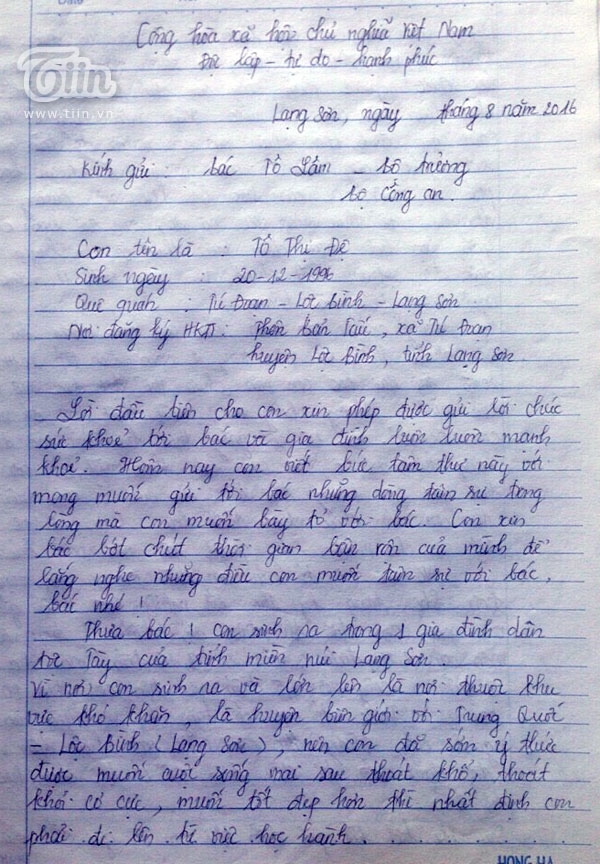 Cộng hòa xã hội chủ nghĩa Việt Nam
Độc lập - tự do - hạnh phúc
Tiin
www.tiin.vn
Lạng Sơn, ngày tháng 8 năm 2016
Kính gửi : bác Tô Lâm - bộ trưởng
bộ Công an.
Con tên là : Tô Thị Đệ
Sinh ngày : 20-12-1996
Quê quán : Tú Đoạn - Lộc Bình - Lạng Sơn
Nơi đăng ký HKTT: thôn bản Tấu, xã Tú Đoạn
huyện Lộc Bình, tỉnh Lạng Sơn.
Lời đầu tiên cho con xin phép được gửi lời chúc
sức khoẻ tới bác và gia đình luôn luôn mạnh
khoẻ. Hôm nay con viết bức tâm thư này với
mong muốn gửi tới bác những dòng tâm sự trong
lòng mà con muốn bày tỏ với bác. Con xin
bác bớt chút thời gian bận rộn của mình để
lắng nghe những điều con muốn tâm sự với bác,
bác nhé !
Thưa bác ! con sinh ra trong 1 gia đình dân
tộc Tày của tỉnh miền núi Lạng Sơn.
Vì nơi con sinh ra và lớn lên là nơi thuộc khu
vực khó khăn, là huyện biên giới với Trung Quốc
- Lộc Bình (Lạng Sơn), nên con đã sớm ý thức
được muốn cuộc sống mai sau thoát khổ, thoát
khỏi cơ cực, muốn tốt đẹp hơn thì nhất định con
phải đi lên từ việc học hành.
HONG HA